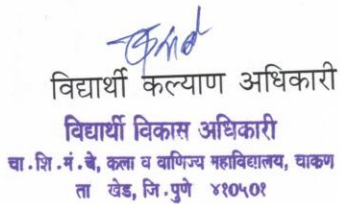 विद्यार्थी कल्याण अधिकारी
विद्यार्थी विकास अधिकारी
चा.शि.मं.चे, कला व वाणिज्य महाविद्यालय, चाकण
ता खेड, जि.पुणे ४१०५०१